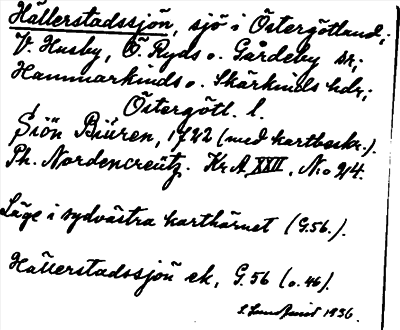 Hällerstadssjön, sjö i Östergötland,
V. Husby, Ö. Ryds o. Gårdeby sr;
Hammarkinds o. Skärkinds hdr;
Östergötl. l.
Siön Biüren, 1722 (med kartbeskr.).
Ph. Nordencreütz. Kr A XXII, No 2/4.
Läge i sydvästra karthörnet (G.56.).
Hällerstadssjön ek, G. 56 (o. 46).
1936.